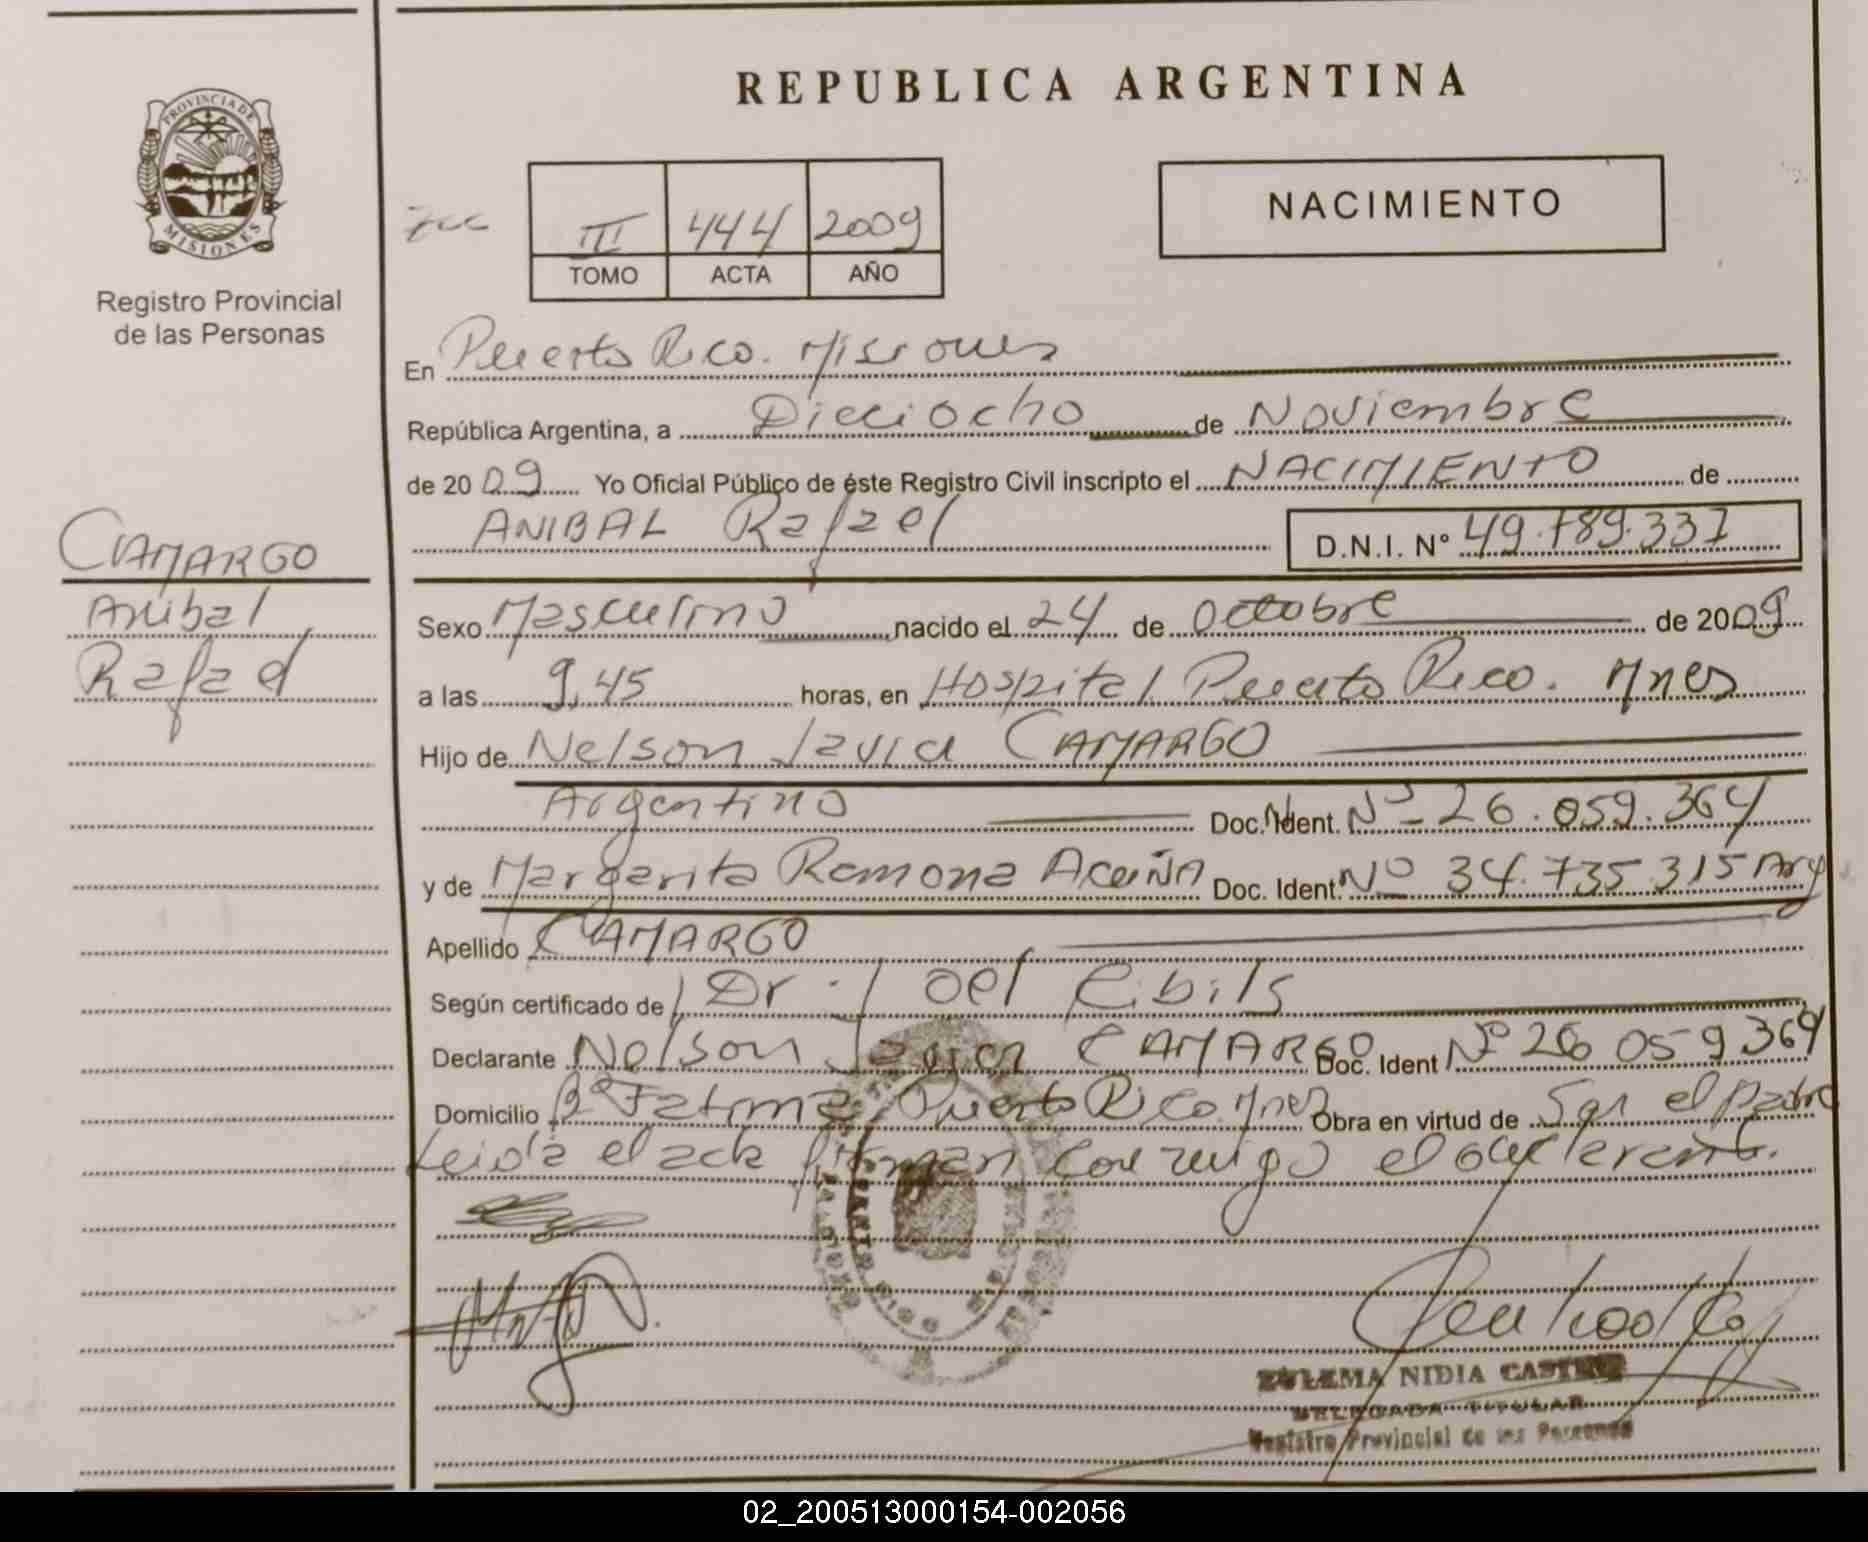 REPUBLICA ARGENTINA
PROVINCIA DE
MISIONES
Registro Provincial
de las Personas
III 444 2009
TOMO ACTA AÑO
NACIMIENTO
En Puerto Rico. Misiones
República Argentina, a Dieciocho de Noviembre
de 2009 Yo Oficial Público de éste Registro Civil inscripto el NACIMIENTO de
ANIBAL Rafael D.N.I. Nº 49.789.337
CAMARGO
Anibal
Rafael
Sexo Masculino nacido el 24 de Octobre de 2009
a las 9,45 horas, en Hospital Puerto Rico. Mnes
Hijo de Nelson Javier CAMARGO
Argentino Doc. Ident. Nº 26.059.364
y de Margarita Ramona Acuña Doc. Ident. Nº 34.735.315 Arg
Apellido CAMARGO
Según certificado de Dr. Joel Cibils
Declarante Nelson Javier CAMARGO Doc. Ident Nº 26 059 364
Domicilio Bº Fatima, Puerto Rico. Mnes Obra en virtud de Ser el padre
Leida el acta firman conmigo el declarante.
ZULEMA NIDIA
DELEGADA TITULAR
Registro Provincial de las Personas
02_200513000154-002056